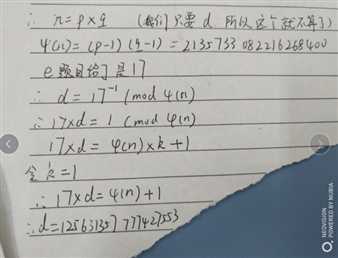 ∴ n = p × q （我们只要 d 所以这个就不算了）
φ(n) = (p-1)(q-1) = 2135733082216268400
e 题目给了是17
∴ d = 17⁻¹ (mod φ(n)
∴ 17×d = 1 (mod φ(n)
17×d = φ(n)×k + 1
令 k = 1
∴ 17×d = φ(n) + 1
∴ d = 125631357777427553
NEOVISION
POWERED BY NUBIA